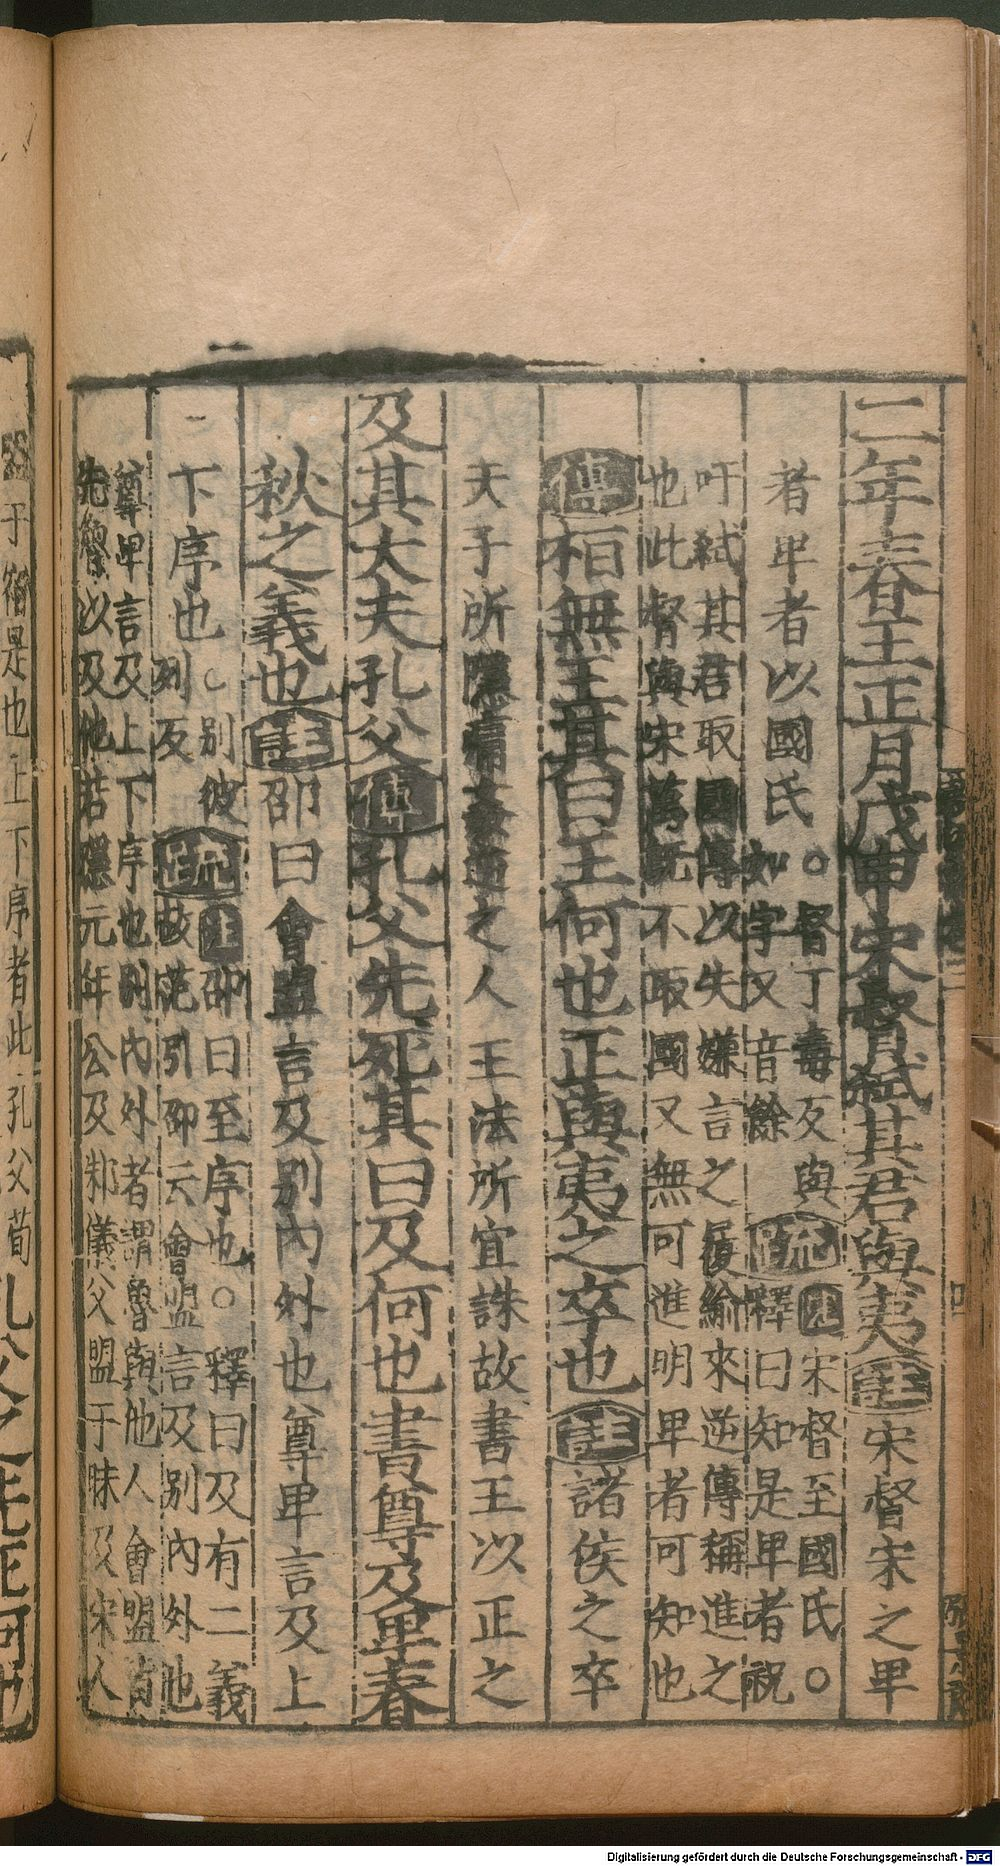 二年春王正月戊申宋督弒其君與夷註宋督宋之卑
者卑者以國氏○督丁毒反與
如字又音餘
疏註宋督至國氏○
釋曰知是卑者祝
吁弒其君取國傳以失嫌言之履緰來逆傳稱進之
也此督與宋萬旣不取國又無可進明卑者可知也
傳桓無王其曰王何也正與夷之卒也註諸侯之卒
天子所隱痛姦逆之人王法所宜誅故書王以正之
及其大夫孔父傳孔父先死其曰及何也書尊及卑春
秋之義也註邵曰會盟言及別內外也尊卑言及上
下序也○別彼
列反
疏註邵曰至序也○釋曰及有二義
故范引邵云會盟言及別內外他
尊卑言及上下序也別內外者謂魯與他人會盟皆
先魯以及他若隱元年公及邾儀父盟于昧及宋人
盟于宿是也上下序者此孔父荀
Digitalisierung gefördert durch die Deutsche Forschungsgemeinschaft - DFG